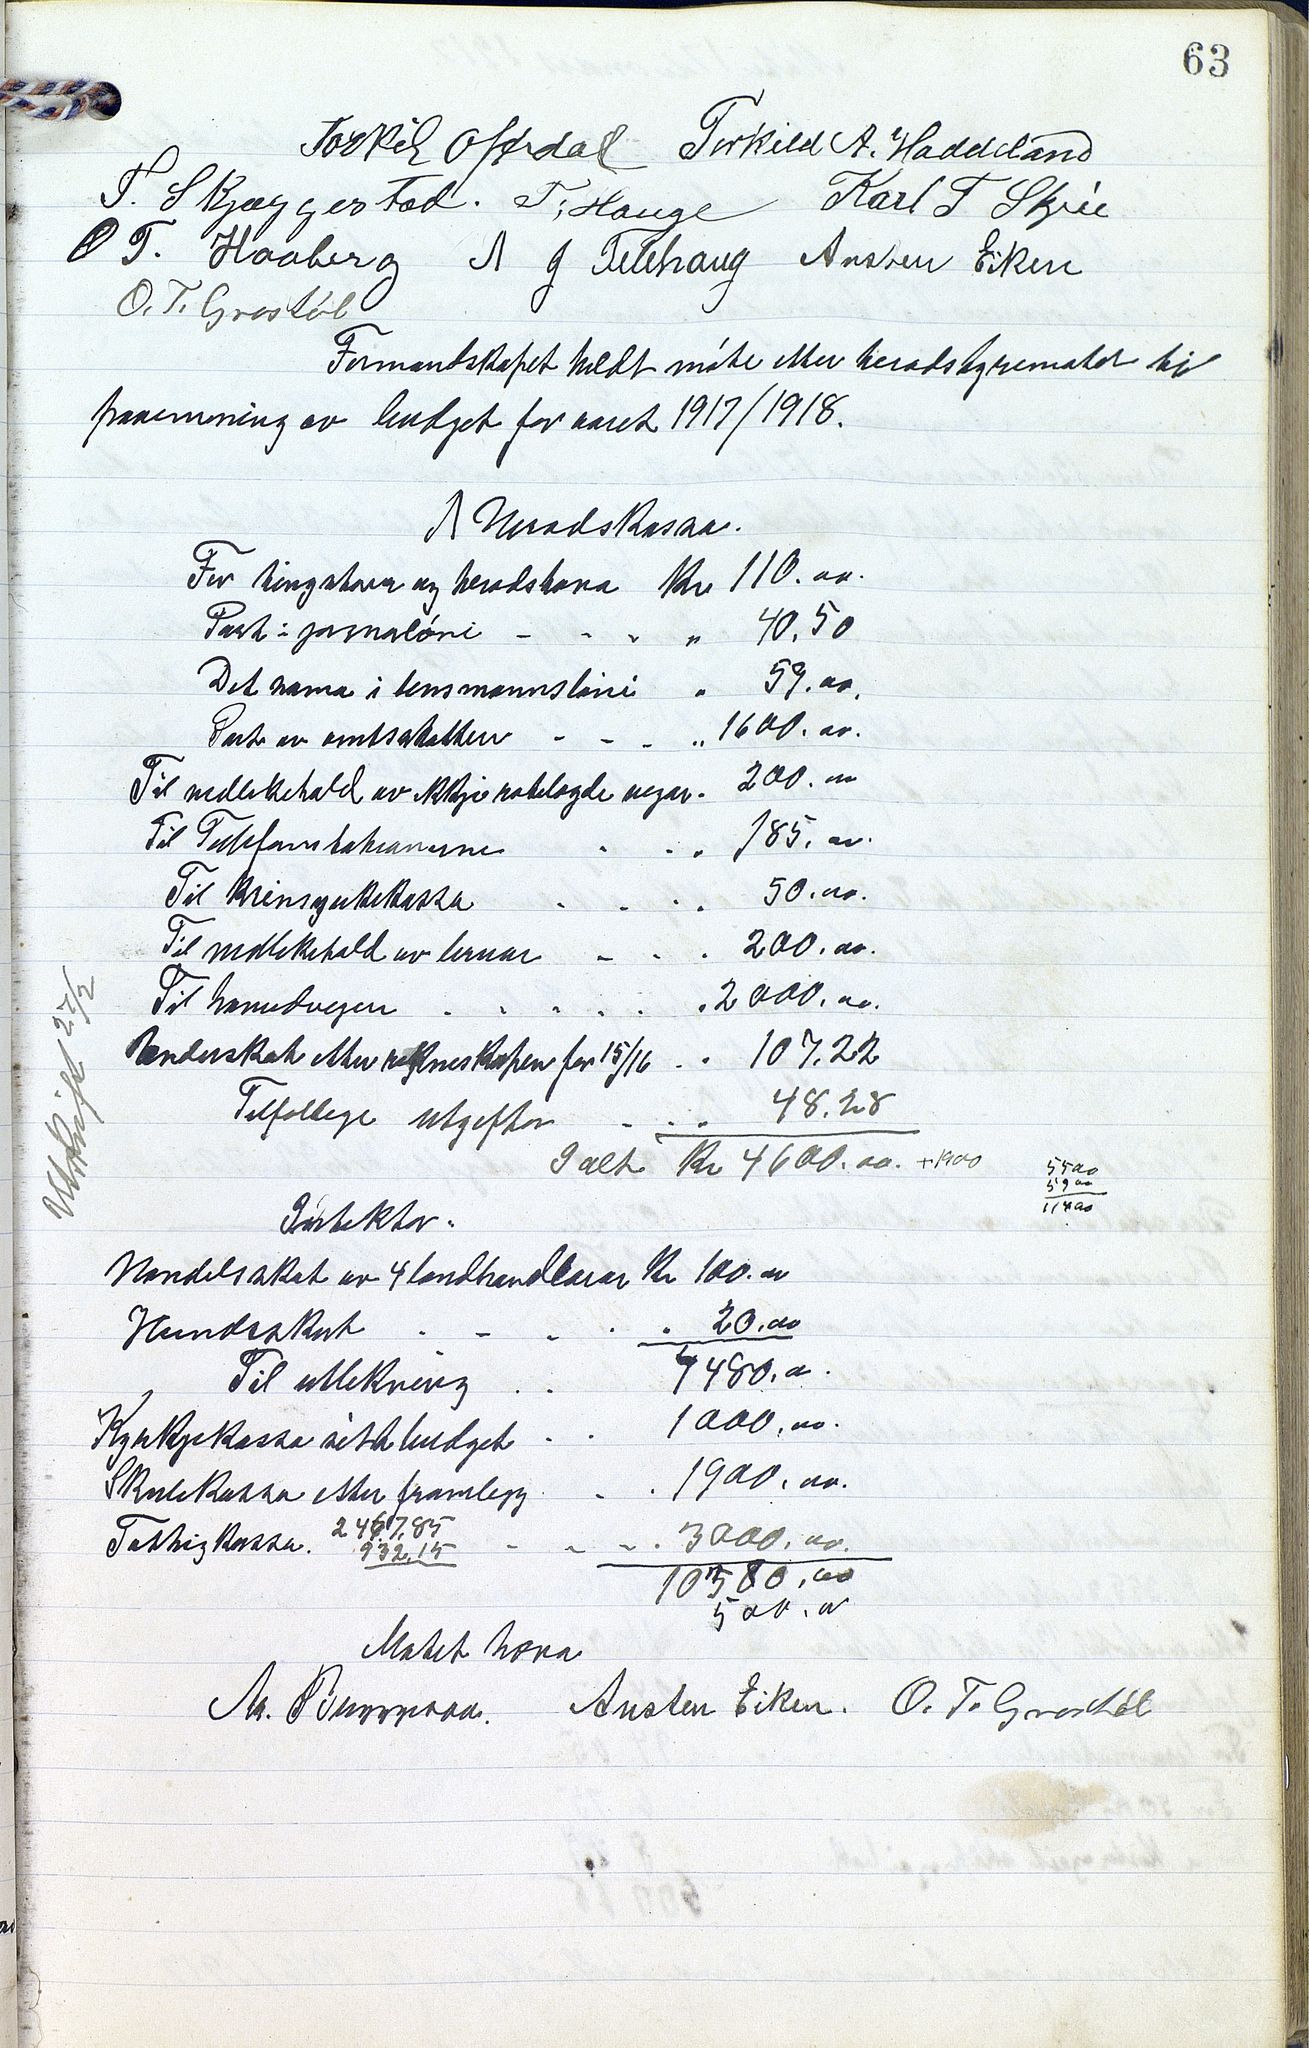 63
Torkil Ofjrdal Torkild A. Haddeland
T. Skjeggestad. T. Hauge Karl T Skjeie
O T. Haaberg A G Telehaug Austen Eiken
O. T. Grostöl
Formandskapet heldt möte etter heradstyremøtet til
framemning av budget for aaret 1917/1918.
A Heradskassa.
For tingstova og heradstova Kr 110.00.
Part i jormorlöni - - - " 40,50
Det sama i lensmannslöni " 59.00.
Part av amtsskatten - - - " 1600.00.
Til vedlikehald av ikkje rodelagde vegar. 200.00
Til Telefonstationerne 185.00.
Til krinssjukekassa 50.00.
Til vedlikehald av bruar - - - 200.00.
Til hovudvegen 2000.00.
Underskot etter rekneskapen for 15/16 107.22
Tilfellege utgiftor 48.28
I alt Kr 4600.00. +1900
5500
5900
11400
Utskrift 27/2
Inntektor.
Handelsskat av 4 landhandlarar Kr 100.00
Hundeskat 20.00
Til utlikning 4480.00.
Kyrkjekassa sitt budget 1000.00.
Skulekassa etter framlegg 1900.00.
Fattigkassa. 2467.85 3000.00.
932.15
10380.00
500.00
Møtet hæva
Austen Eiken. O. T. Grostöl